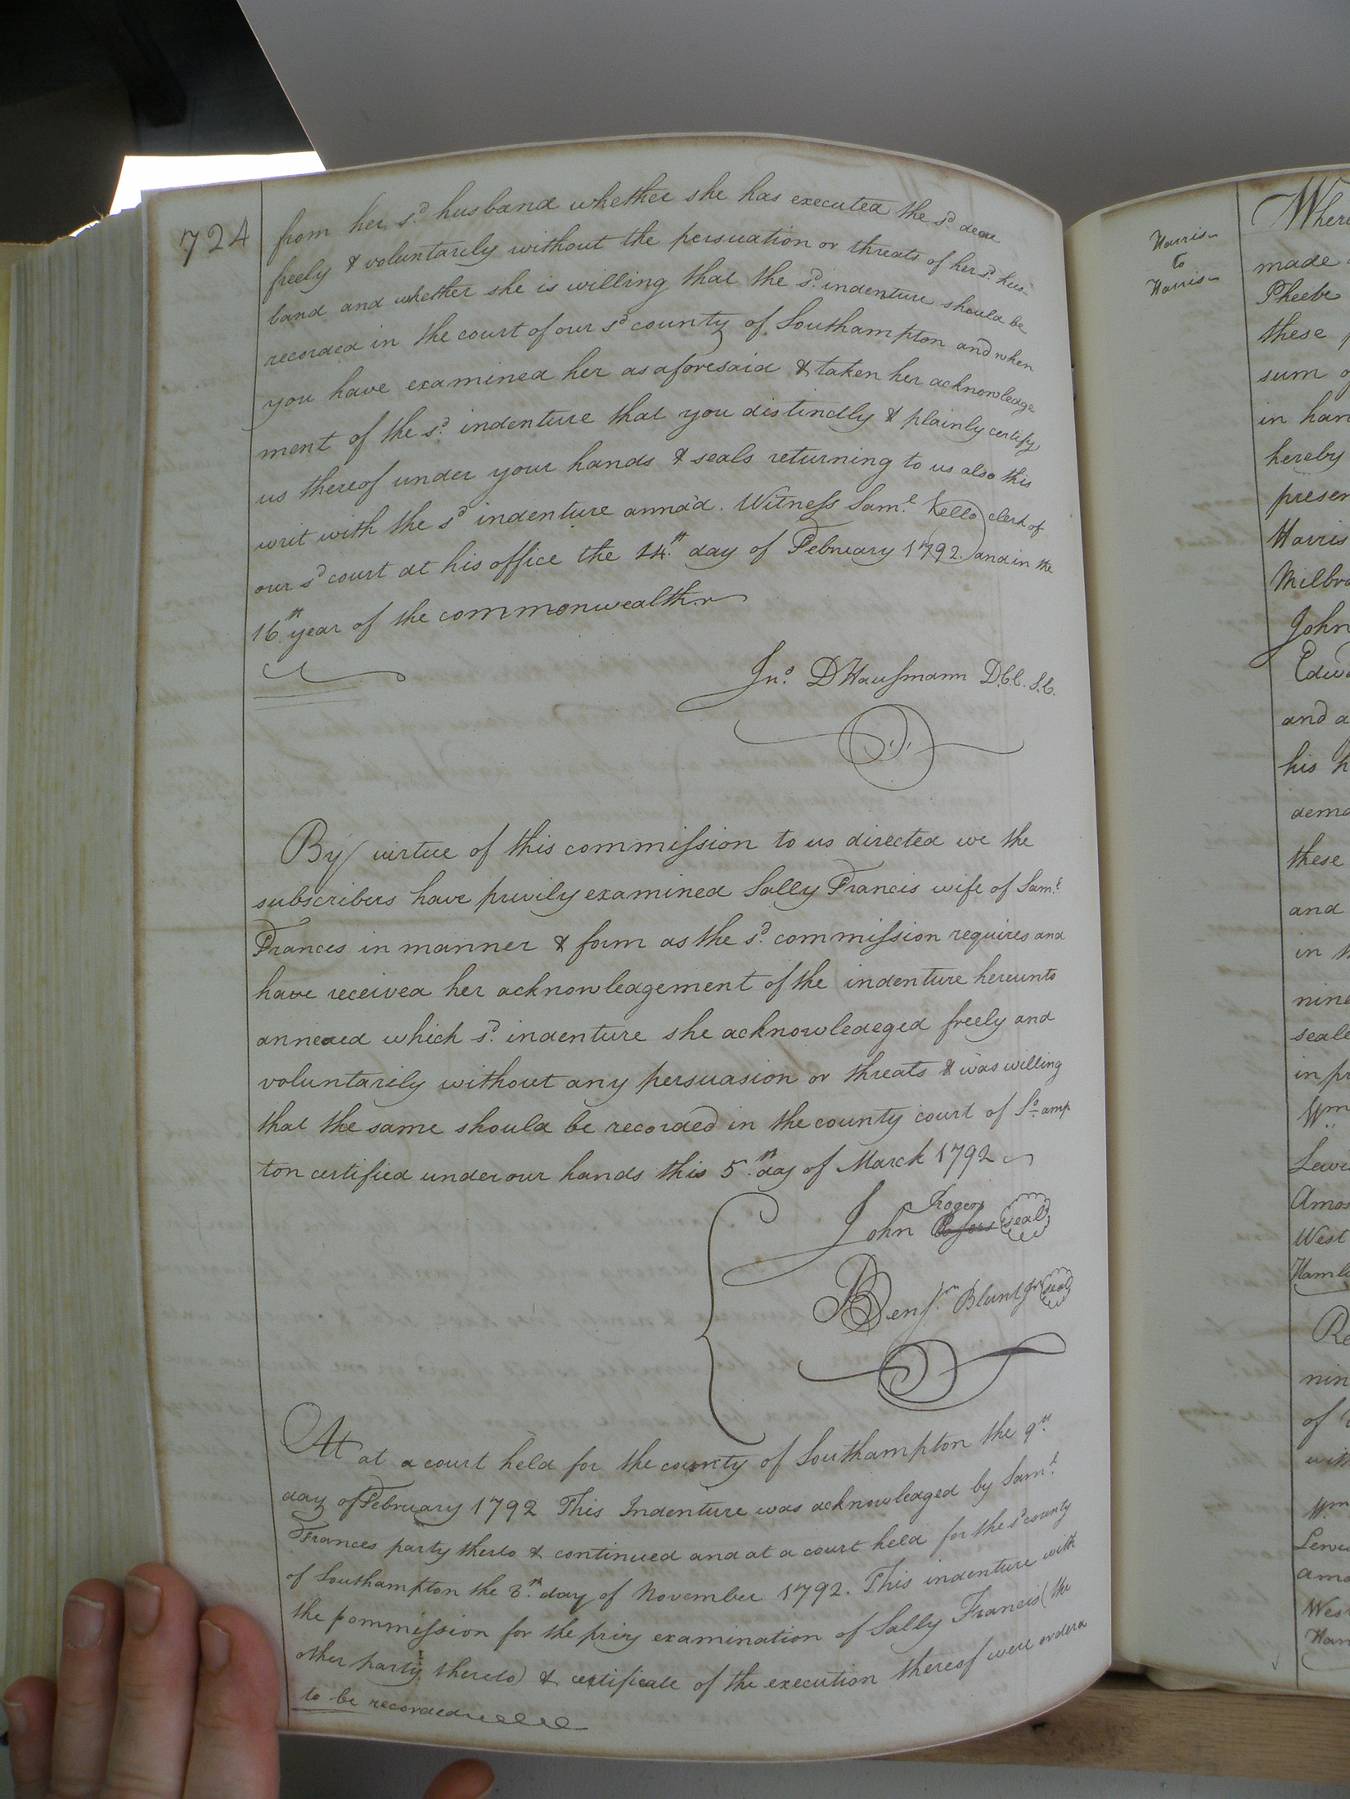 724
from her sd husband whether she has executed the sd deed
freely & voluntarily without the persuation or threats of her sd hus-
band and whether she is willing that the sd indenture should be
recorded in the court of our sd county of Southampton and when
you have examined her as aforesaid & taken her acknowledge
ment of the sd indenture that you distinctly & plainly certify
us thereof under your hands & seals returning to us also this
writ with the sd indenture annxd. Witness Saml Kello clerk of
our sd court at his office the 14th day of February 1792 and in the
16th year of the commonwealth
Jno D Hausmann D.C.C. S.C.
By virtue of this commission to us directed we the
subscribers have privily examined Sally Francis wife of Saml
Frances in manner & form as the sd commission requires and
have received her acknowledgement of the indenture hereunto
annexed which sd indenture she acknowledeged freely and
voluntarily without any persuasion or threats & was willing
that the same should be recorded in the county court of So amp
ton certified under our hands this 5th day of March 1792
Rogers
John seal
Benjn Blunt Jr seal
At at a court held for the county of Southampton the 9th
day of February 1792 This Indenture was acknowledged by Saml
Frances party thereto & continued and at a court held for the sd county
of Southampton the 8th day of November 1792. This indenture with
the commission for the privy examination of Sally Francis (the
other party thereto) & certificate of the execution thereof were orderd
to be recorded
Harris
to
Harris
Where
made
Pheebe
these
sum of
in han
hereby
presen
Harris
Milbra
John
Edwa
and a
his h
dema
these
and
in
nine
seale
in pr
Wm
Lewi
Amos
West
Haml
Re
nin
of
wit
Wm
Lewi
amo
West
Ham